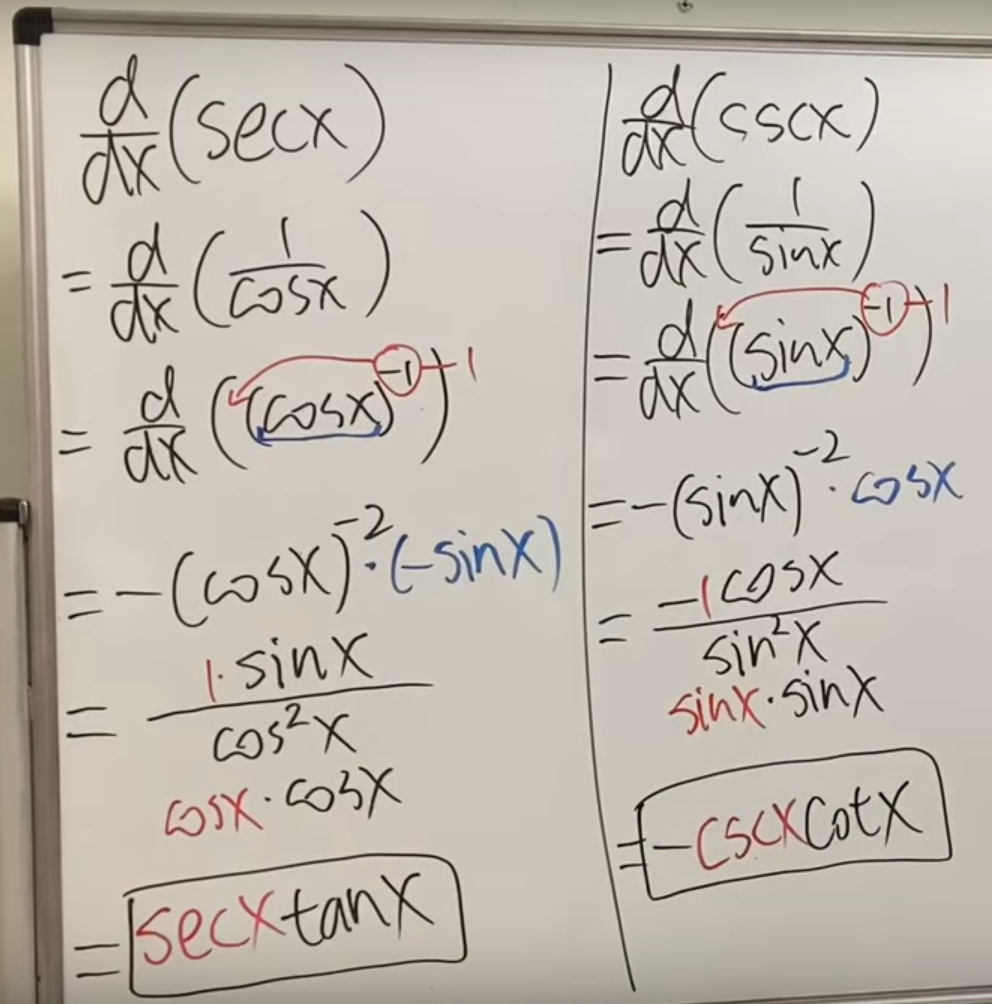 d/dx (secx)
= d/dx (1/cosx)
= d/dx ((cosx)^-1) -1
= -(cosx)^-2 · (-sinx)
= 1·sinx / cos²x
cosx · cosx
= secx tanx
d/dx (cscx)
= d/dx (1/sinx)
= d/dx ((sinx)^-1) -1
= -(sinx)^-2 · cosx
= -1 cosx / sin²x
sinx · sinx
= -cscx cotx